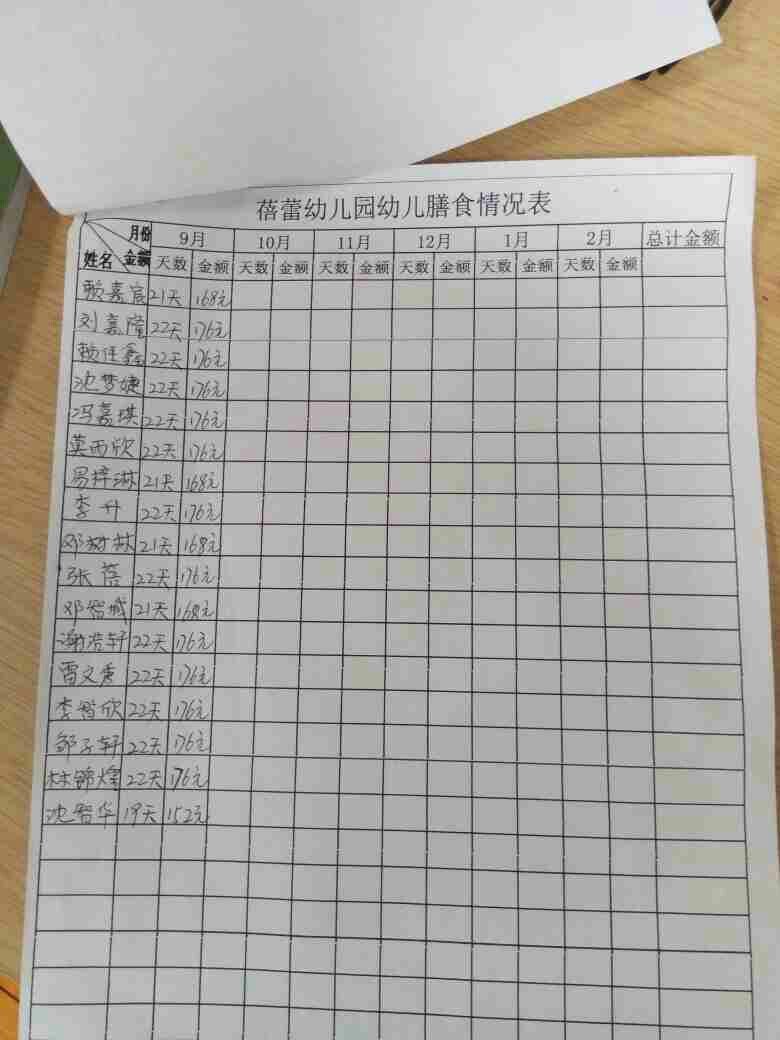 蓓蕾幼儿园幼儿膳食情况表
月份 9月 10月 11月 12月 1月 2月 总计金额
姓名 金额 天数 金额 天数 金额 天数 金额 天数 金额 天数 金额 天数 金额
赖嘉宸 21天 168元
刘嘉隆 22天 176元
赖任鑫 22天 176元
沈梦婕 22天 176元
冯嘉琪 22天 176元
莫雨欣 22天 176元
易梓琳 21天 168元
李升 22天 176元
邓树林 21天 168元
张蓓 22天 176元
邓智城 21天 168元
谢浩轩 22天 176元
雷文 22天 176元
李智欣 22天 176元
邹子轩 22天 176元
林锦煌 22天 176元
沈智华 19天 152元